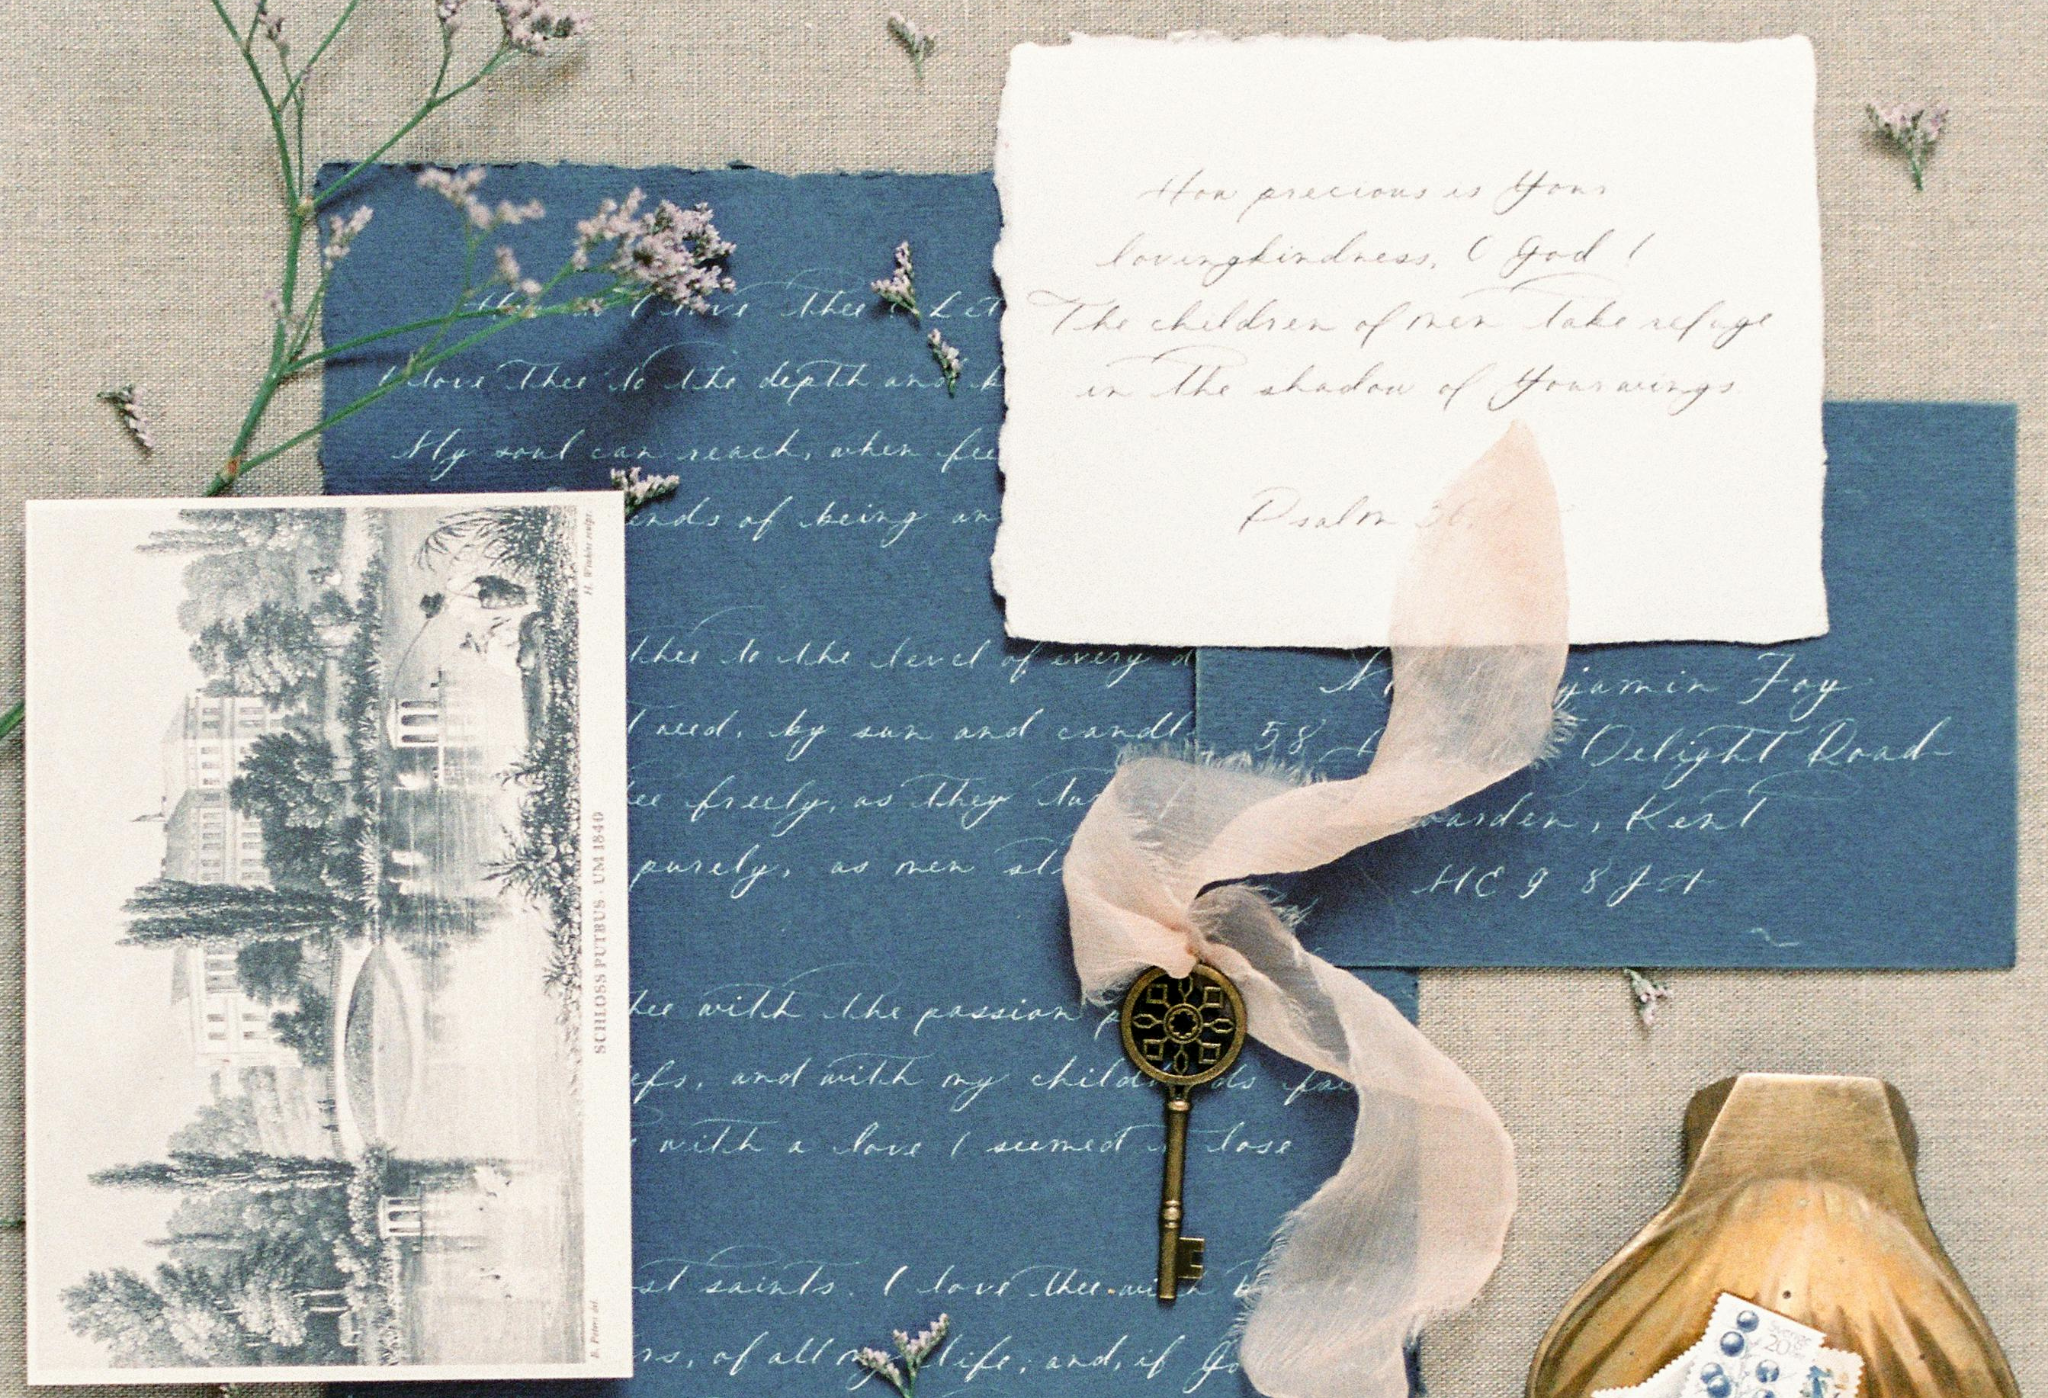 How precious is Your
lovingkindness, O God!
The children of men take refuge
in the shadow of Your wings
Psalm 36.
love thee? Let
I love thee to the depth and
My soul can reach, when fee
ends of being an
thee to the level of every
need, by sun and candl
freely, as they
purely, as men st
with the passion
efs, and with my child
with a love I seemed lose
st saints. I love thee with
rs, of all my life; and, if Go
jamin Foy
58 Delight Road
arden, Kent
HE9 8JH
SCHLOSS PUTBUS · UM 1840
Sverige
20